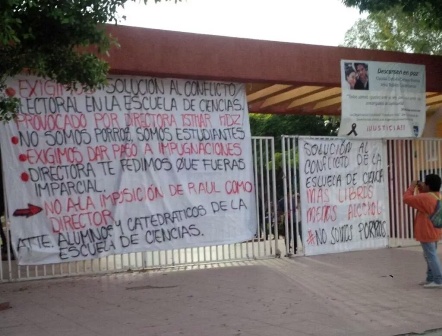 EXIGIMOS SOLUCIÓN AL CONFLICTO
ELECTORAL EN LA ESCUELA DE CIENCIAS,
PROVOCADO POR DIRECTORA ISMAR MDZ.
NO SOMOS PORROS, SOMOS ESTUDIANTES
EXIGIMOS DAR PASO A IMPUGNACIONES
DIRECTORA TE PEDIMOS QUE FUERAS
IMPARCIAL.
NO A LA IMPOSICIÓN DE RAUL COMO
DIRECTOR
ATTE. ALUMNOS Y CATEDRATICOS DE LA
ESCUELA DE CIENCIAS.
SOLUCIÓN AL
CONFLICTO DE LA
ESCUELA DE CIENCIA
MAS LIBROS
MENOS ALCOHOL
NO SOMOS PORROS
Descansen en paz
¡JUSTICIA!